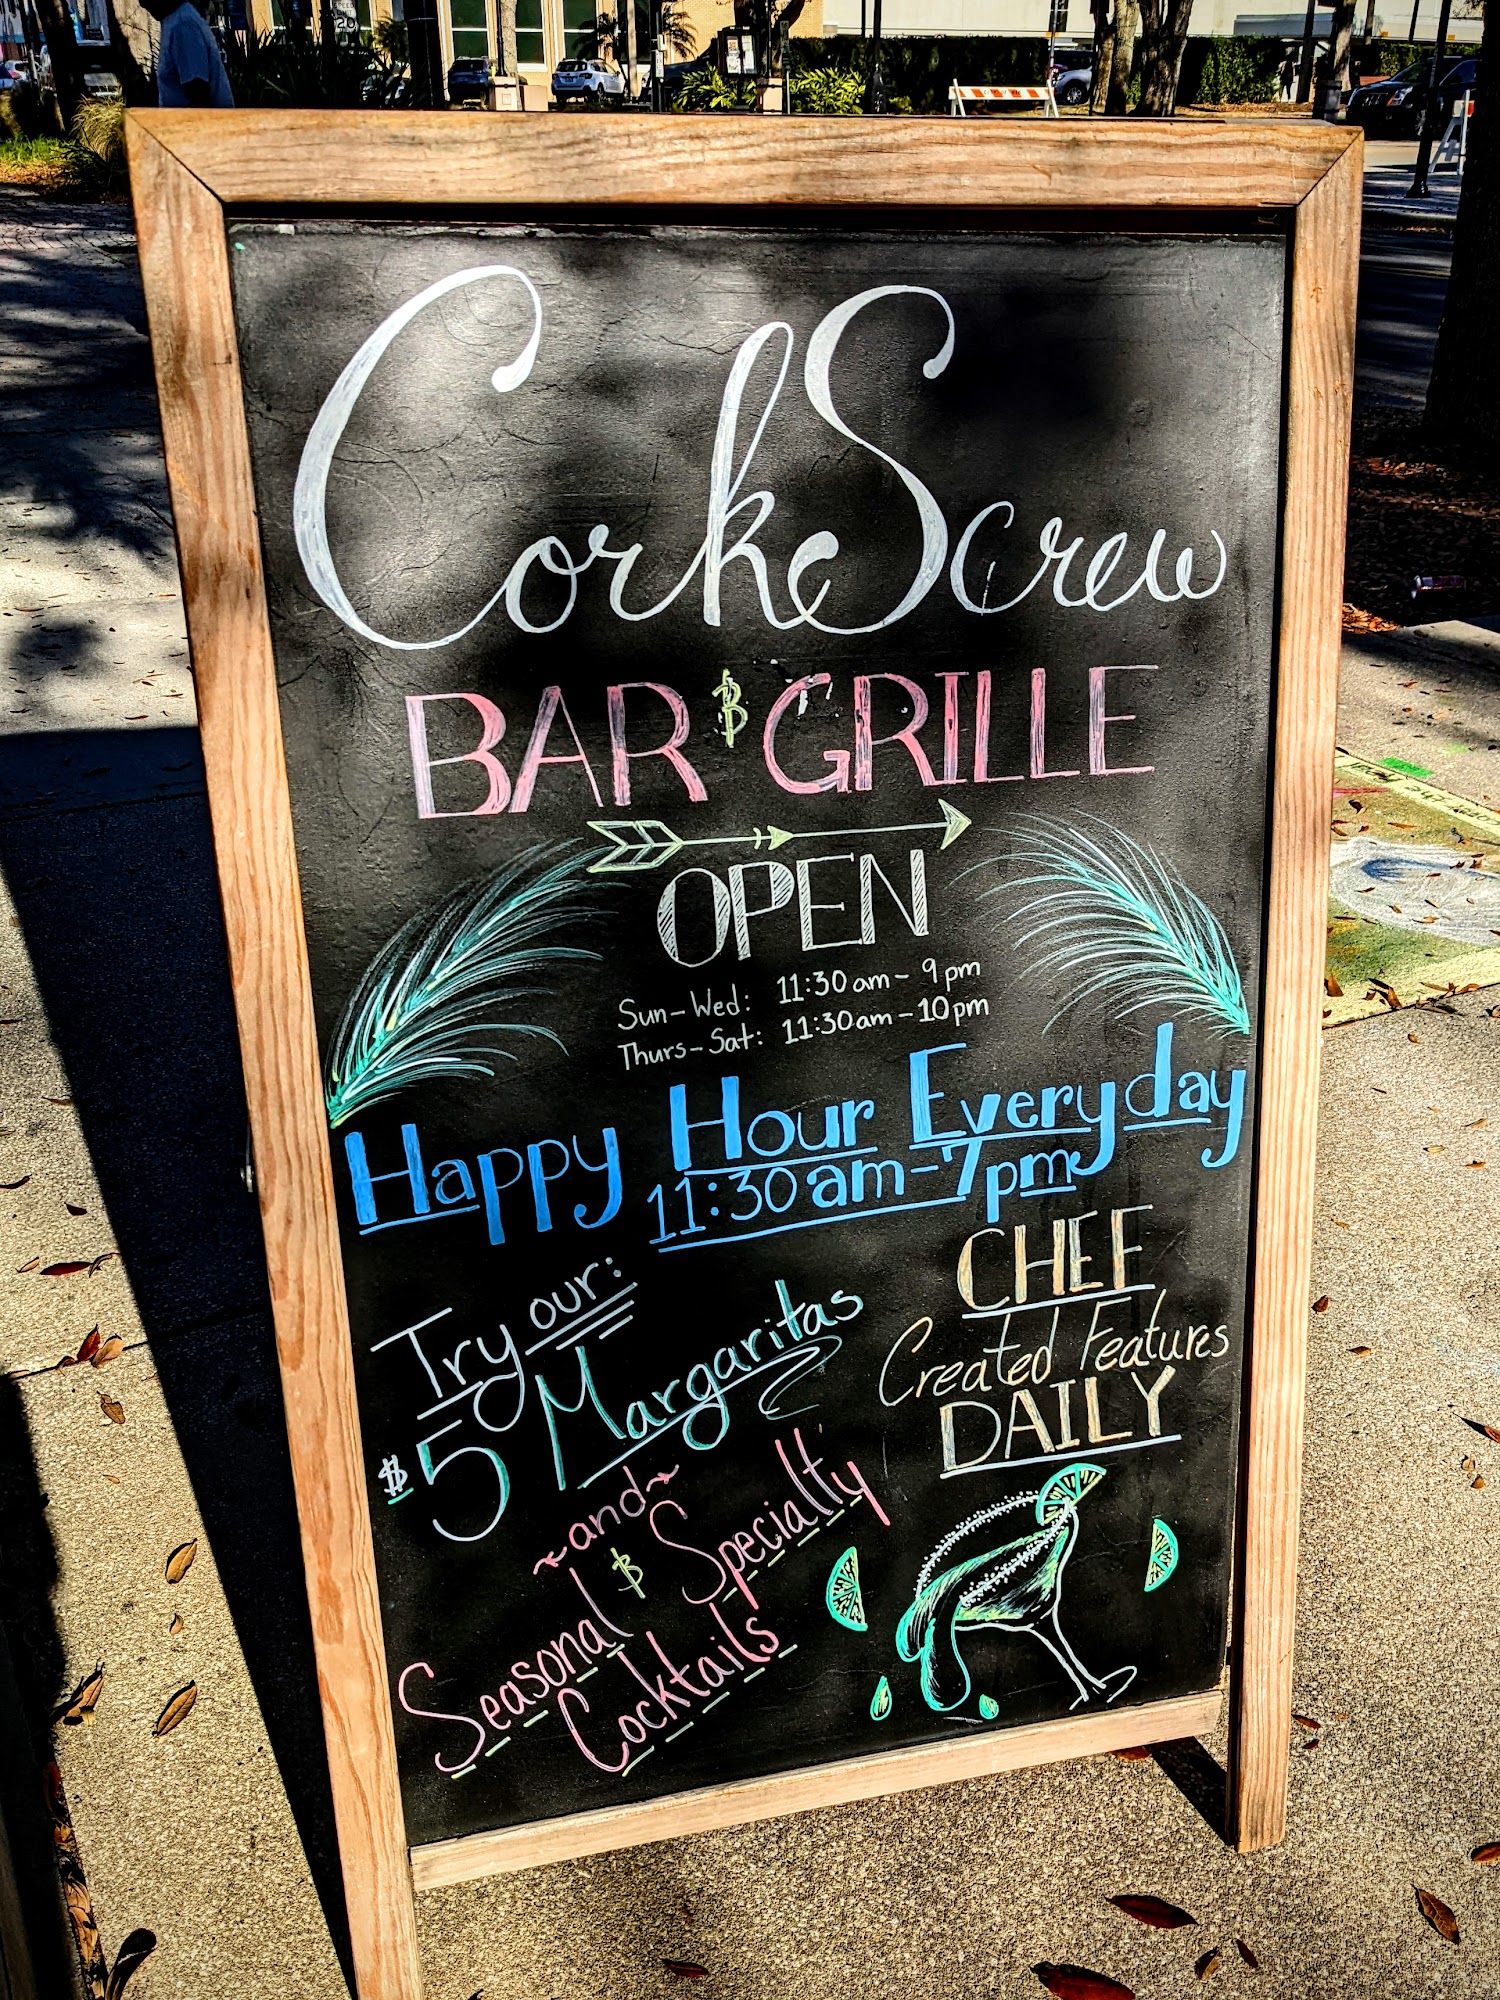 CorkScrew
BAR & GRILLE
OPEN
Sun-Wed: 11:30am - 9pm
Thurs-Sat: 11:30am - 10pm
Happy Hour Everyday
11:30am-7pm
Try our:
$5 Margaritas
and
Seasonal & Specialty
Cocktails
CHEF
Created Features
DAILY